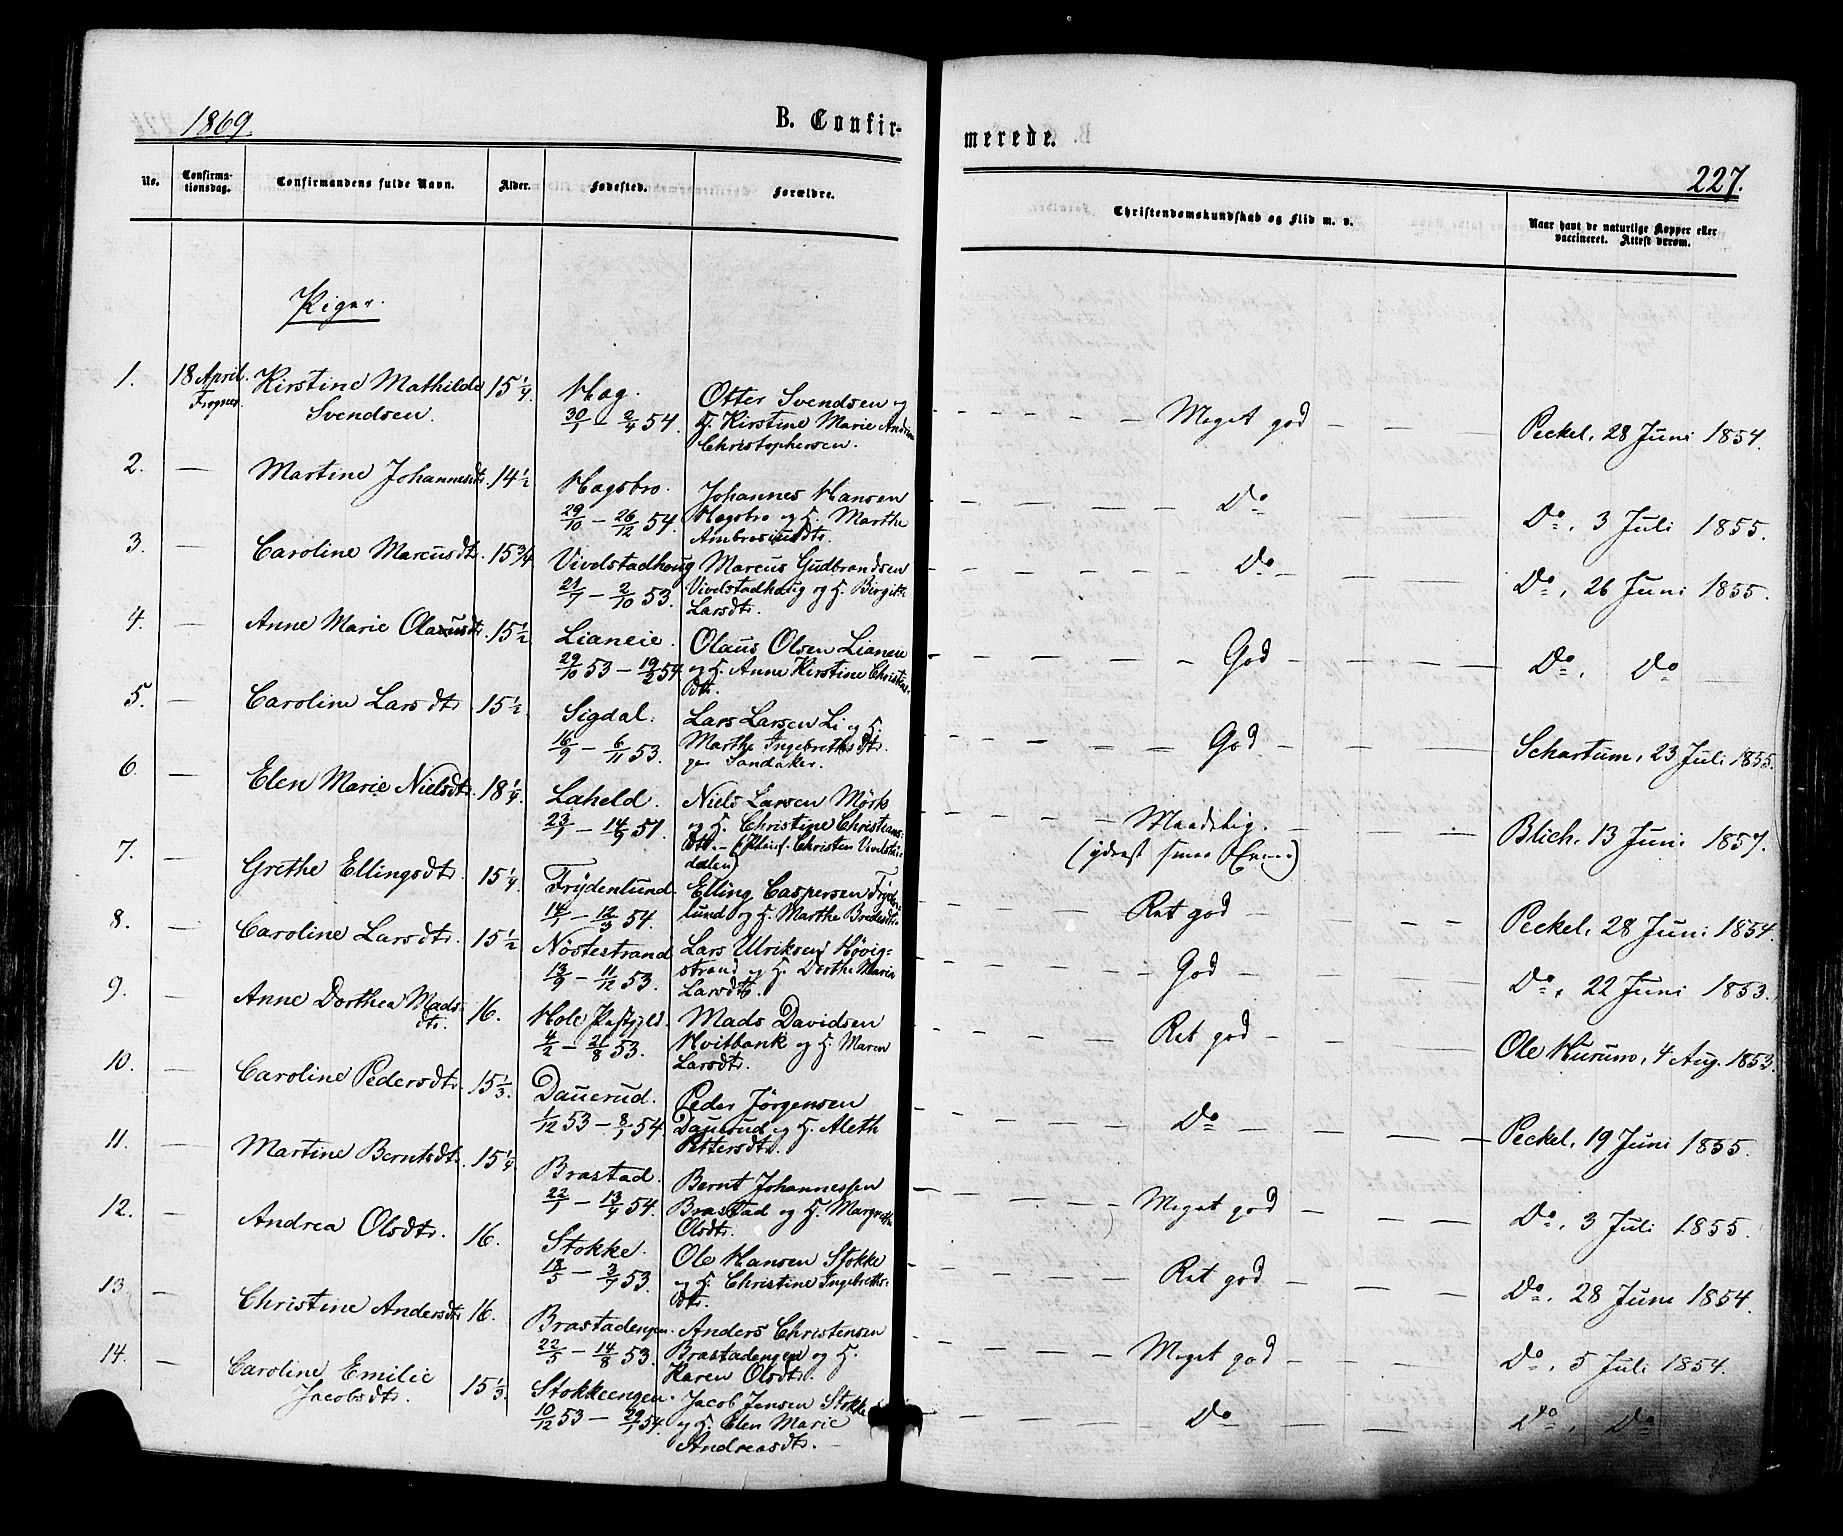 1869.
B. Confir-
merede.
227.
No.
Confirma-
tionsdag.
Confirmandens fulde Navn.
Alder.
Fødested.
Forældre.
Christendomskundskab og Flid m. v.
Naar havt de naturlige Kopper eller
vaccineret. Attest derom.
Piger.
1. 18 April. Kirstine Mathilde 15 1/4 Hag. Otter Svendsen og — Meget god — Peckel, 28 Juni 1854.
Frogner. Svendsen. 30/1 – 2/4 54. H. Kirstine Marie
Christophersen.
2. — Martine Johannesdtr. 14 1/2 Hagsbro. Johannes Hansen — Do — Do, 3 Juli 1855.
29/10 – 26/12 54. Hagsbro og H. Marthe
Ambrosiusdtr.
3. — Caroline Marcusdtr. 15 3/4 Vivelstadhaug Marcus Gudbrandsen — Do — Do, 26 Juni 1855.
21/7 – 2/10 53. Vivelstadhaug og H. Birgitte
Larsdtr.
4. — Anne Marie Olausdtr. 15 1/2 Lianeie. Olaus Olsen Lianeie — God — Do, Do
29/10 53 – 19/2 54. og H. Anne Kirstine Christens-
dtr.
5. — Caroline Larsdtr. 15 1/2 Sigdal. Lars Larsen Li og H. — God — Schartum, 23 Juli 1855.
16/9 – 6/11 53. Marthe Ingebrethsdtr.
Sandaker.
6. — Elen Marie Nielsdtr. 18 1/4 Laheld. Niels Larsen Mörk — Maadelig. — Blich, 13 Juni 1857.
23/1 – 14/9 51. og H. Christine Christians- (yderst smaa Evner)
dtr. – (Pleief. Christen Vivelstad-
dalen)
7. — Grethe Ellingsdtr. 15 1/4 Frydenlund. Elling Caspersen Fryden- — Ret god — Peckel, 28 Juni 1854.
14/1 – 12/3 54. lund og H. Marthe Bredesdtr.
8. — Caroline Larsdtr. 15 1/2 Nöstestrand Lars Ulriksen Høvig- — God — Do, 22 Juni 1853.
13/9 – 11/12 53. strand og H. Dorthe Marie
Larsdtr.
9. — Anne Dorthea Mads- 16. Hole Præstgjeld. Mads Davidsen — Ret god — Ole Hurum, 4 Aug. 1853.
dtr. 4/2 – 21/8 53. Hvitbank og H. Maren
Larsdtr.
10. — Caroline Pedersdtr. 15 1/3. Dauerud. Peder Jörgensen — Do — Peckel, 19 Juni 1855.
1/12 53 – 8/1 54. Dauerud og H. Aleth
Pettersdtr.
11. — Martine Berntsdtr. 15 1/4 Brastad. Bernt Johannessen — Meget god — Do, 3 Juli 1855.
22/1 – 13/4 54. Brastad og H. Margrethe
Olsdtr.
12. — Andrea Olsdtr. 16. Stokke. Ole Hansen Stokke — Ret god — Do, 28 Juni 1854.
18/5 – 3/7 53. og H. Christine Ingebreths-
dtr.
13. — Christine Andersdtr. 16. Brastadengen. Anders Christensen — Meget god — Do, 5 Juli 1854.
22/5 – 14/8 53. Brastadengen og H.
Karen Olsdtr.
14. — Caroline Emilie 15 1/3. Stokkeengen. Jacob Jensen Stokke — Do — Do, Do
Jacobsdtr. 10/12 53 – 29/1 54. og H. Elen Marie
Andreasdtr.